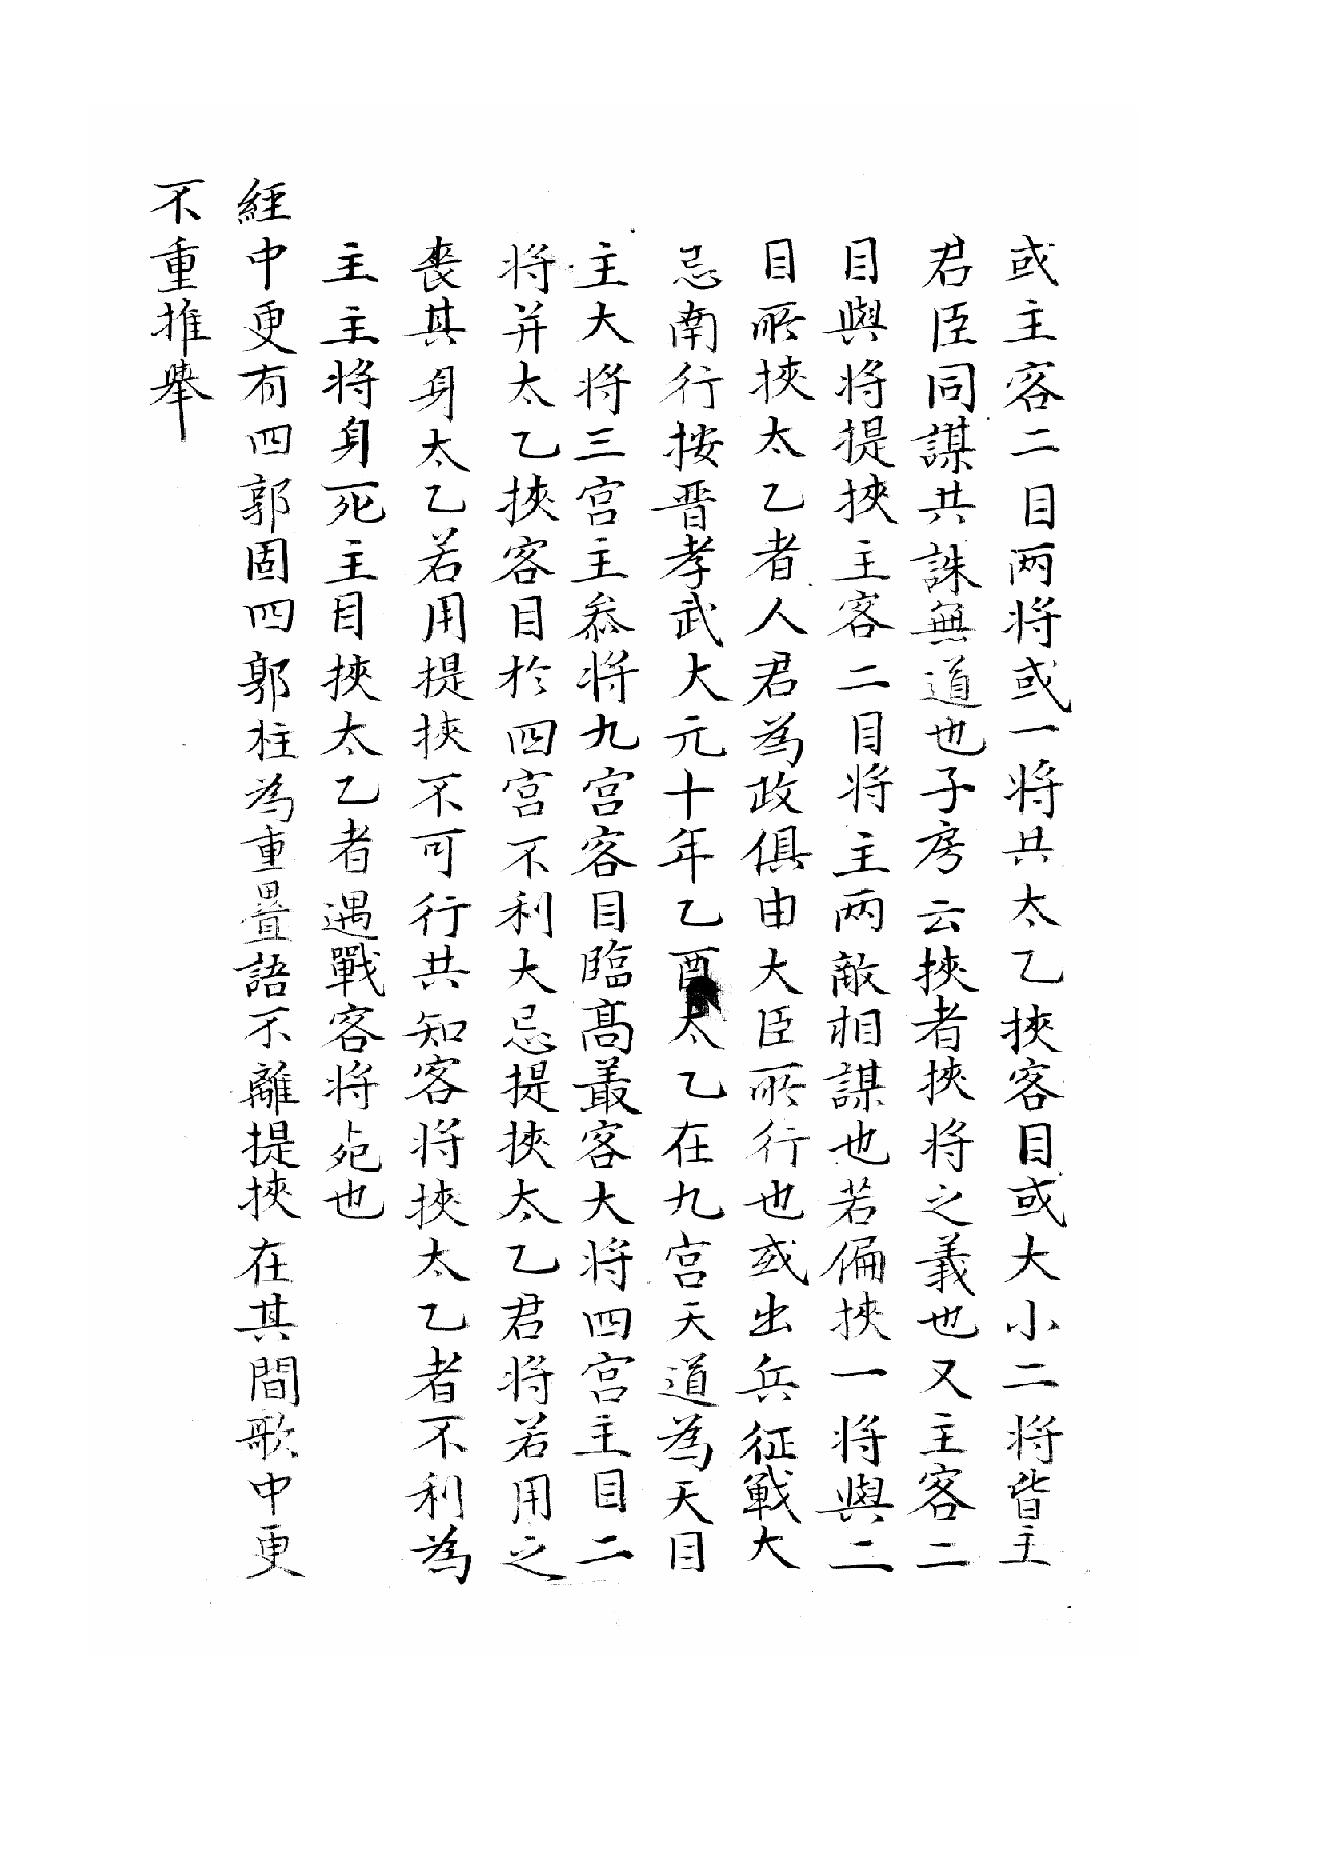 或主客二目两将或一将共太乙挾客目或大小二将皆主
君臣同謀共誅無道也子房云挾者挾将之義也又主客二
目與将提挾主客二目将主两敵相謀也若偏挾一将與二
目所挾太乙者人君為政俱由大臣所行也或出兵征戰大
忌南行按晋孝武大元十年乙酉太乙在九宫天道為天目
主大将三宫主叅将九宫客目臨髙叢客大将四宫主目二
将并太乙挾客目於四宫不利大忌提挾太乙君将若用之
喪其身太乙若用提挾不可行共知客将挾太乙者不利為
主主将身死主目挾太乙者遇戰客将死也
經中更有四郭固四郭柱為重疊語不離提挾在其間歌中更
不重推舉